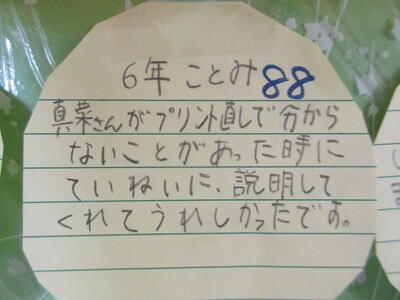 6年 ことみ 88
真菜さんがプリント直しで分から
ないことがあった時に
ていねいに、説明して
くれてうれしかったです。